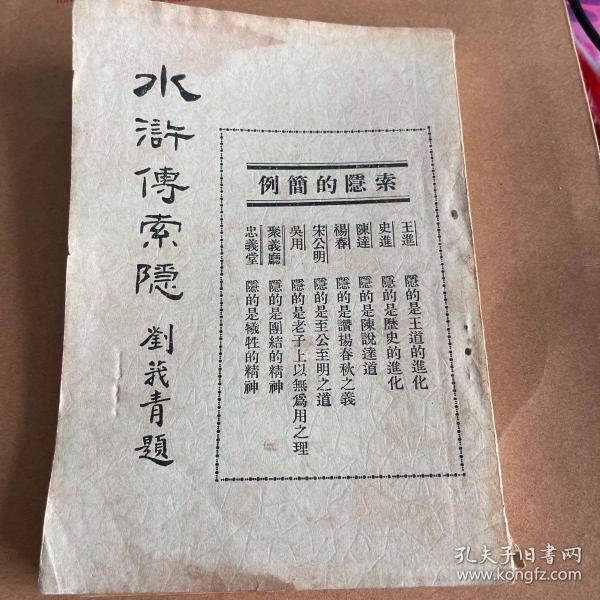 水滸傳索隱
劉莪青題
索隱的簡例
王進 隱的是王道的進化
史進 隱的是歷史的進化
陳達 隱的是陳說達道
楊春 隱的是讚揚春秋之義
宋公明 隱的是至公至明之道
吳用 隱的是老子上以無爲用之理
聚義廳 隱的是團結的精神
忠義堂 隱的是犧牲的精神
孔夫子旧书网
www.kongfz.com